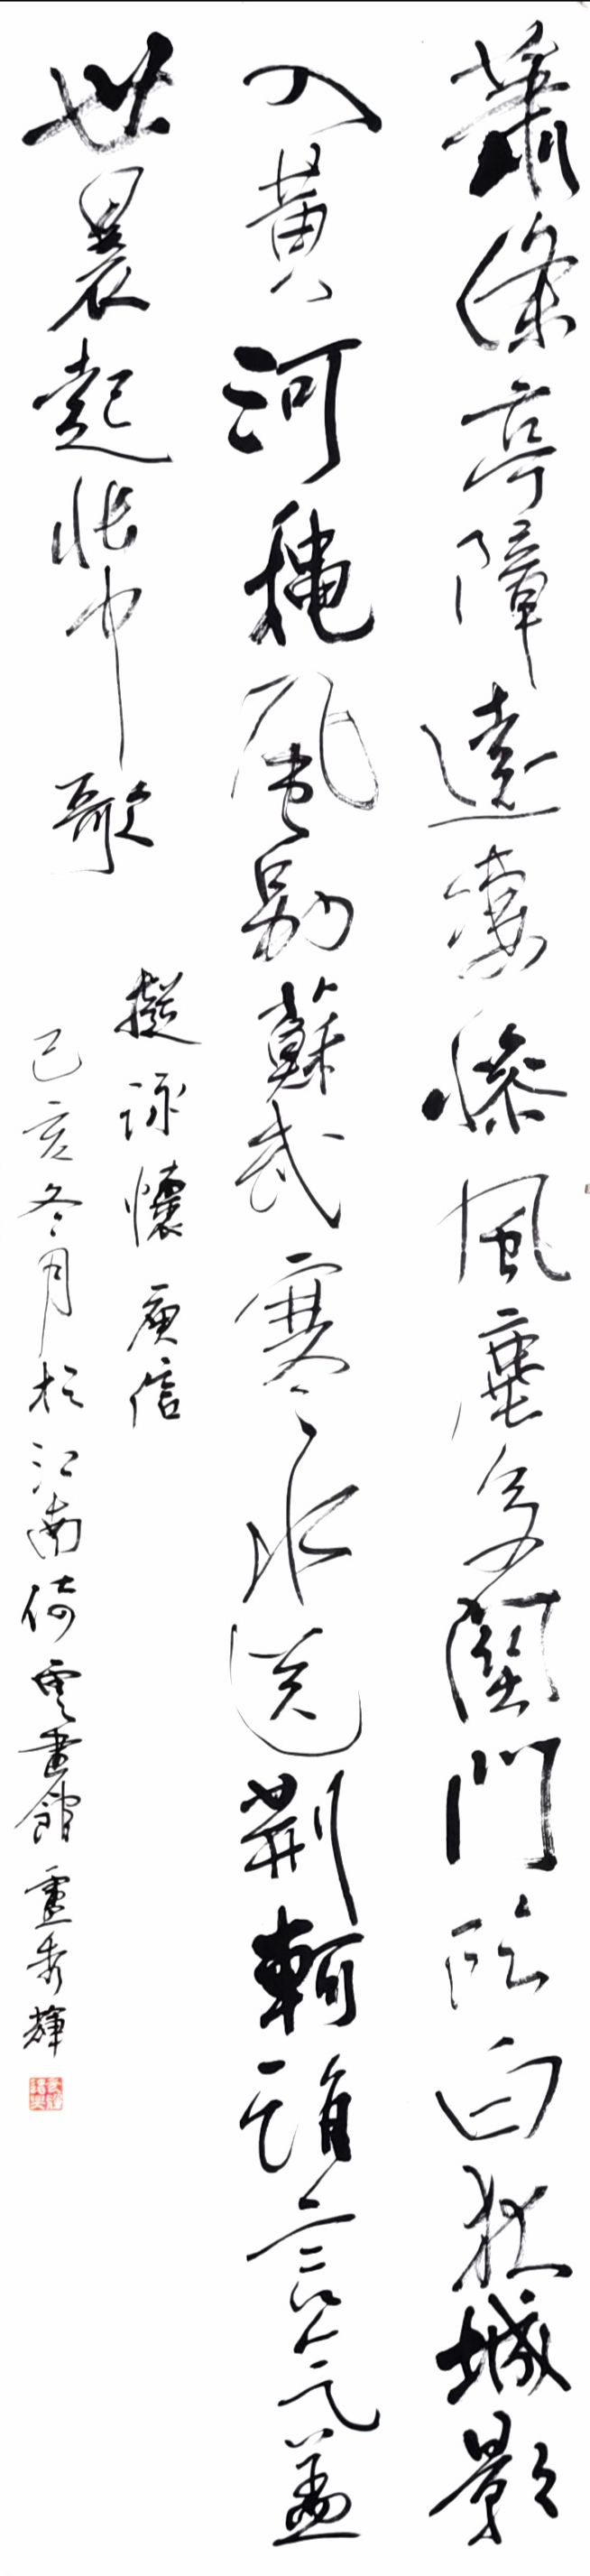 蕭條亭障遠淒慘風塵多關門臨白狄城影
入黃河穐風別蘇武寒水送荊軻誰言氣蓋
世晨起帳中歌
擬詠懷庾信
己亥冬月於江南倚雲書館盧秀輝